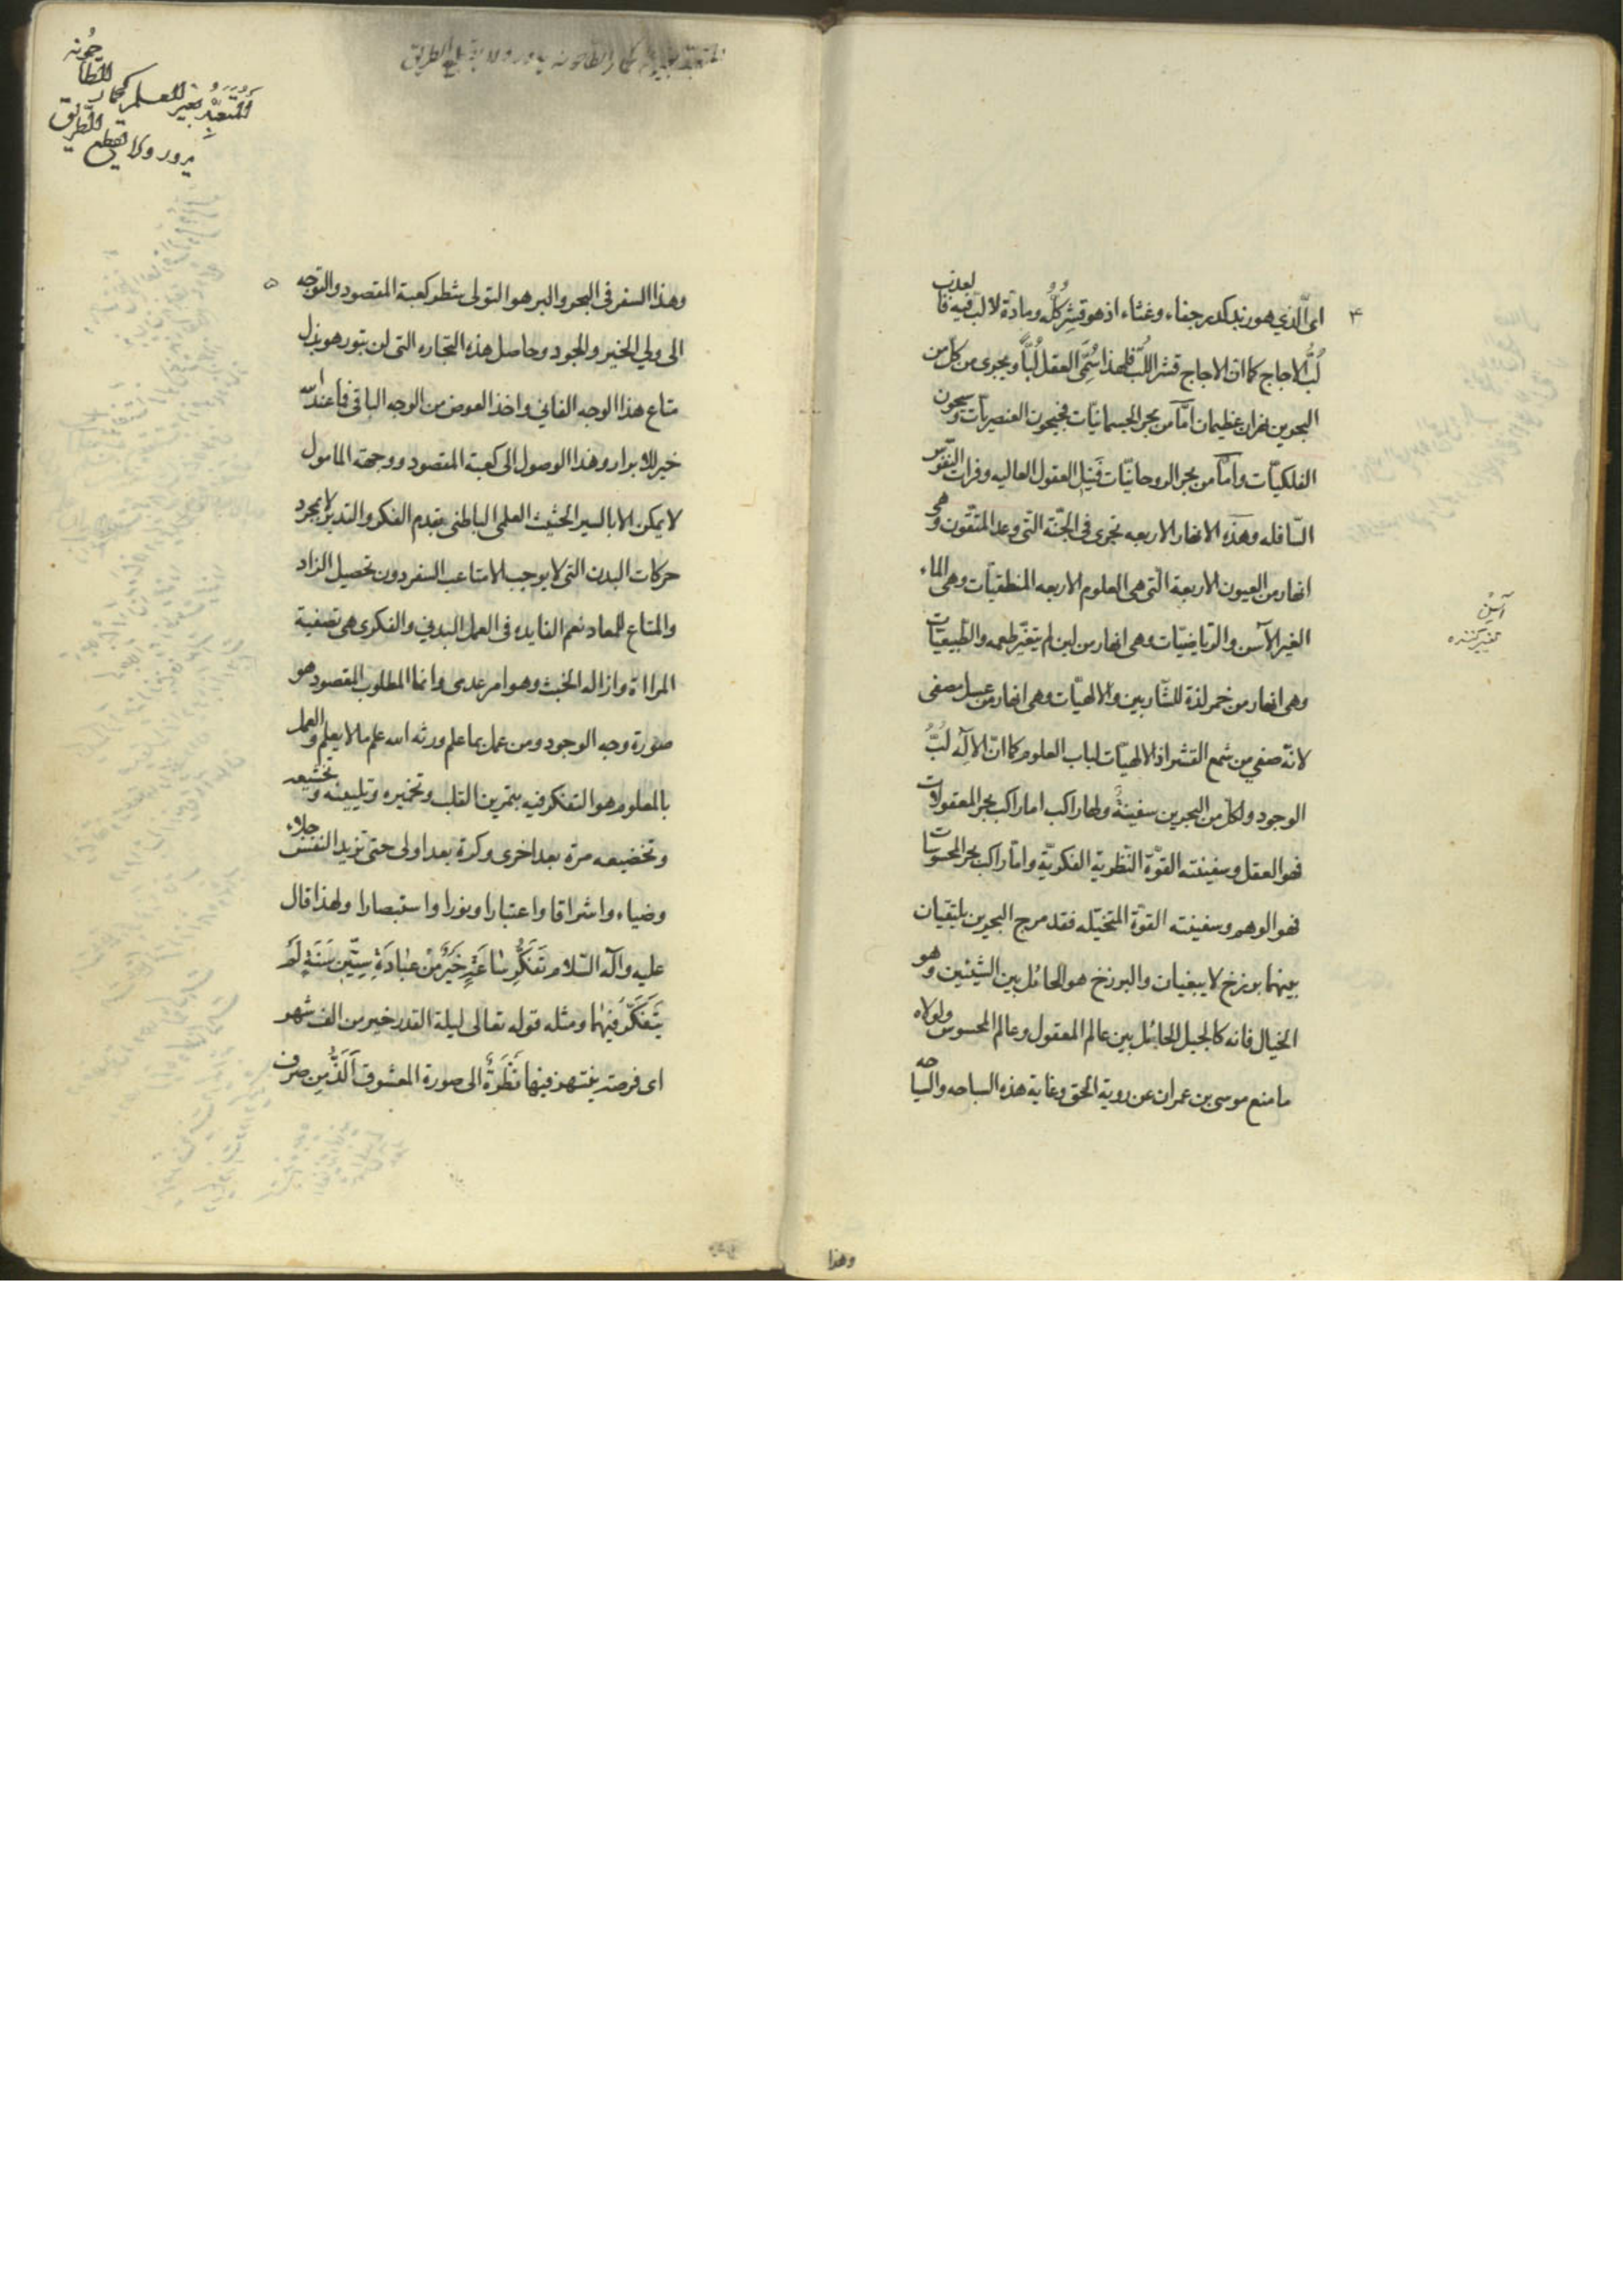 ۴
اى الّذي هو زبد كدر جفاء وغثاء اذ هو قشر كُلُّه ومادّة لا لبّ فيه فالعذب
لُبُّ الاجاج كما انّ الاجاج قشر اللُبّ فلهذا سُمّى العقل لُبّاً ويجرى من كل من
البحرين نهران عظيمان امّا من بحر الجسمانيّات فجيحون العنصريّات وسيحون
الفلكيّات وامّا من بحر الروحانيّات فنيل العقول العاليه وفرات النفوس
السّافله وهذه الانهار الاربعه تجرى فى الجنّة التى وعد المتقون وهى
انهار من العيون الاربعة الّتى هى العلوم الاربعه المنطقيّات وهى الماء
الغير الآسن والرياضيّات وهى انهار من لبن لم يتغيّر طعمه والطبيعيّات
وهى انهار من خمر لذة للشّاربين والالهيّات وهى انهار من عسل مصفى
لانّه صفي من شمع القشر اذ الالهيّات لباب العلوم كما انّ الآله لُبُّ
الوجود ولكل من البحرين سفينةٌ ولها راكب اما راكب بحر المعقولات
فهو العقل وسفينته القوّة النّظرية الفكريّة وامّا راكب بحر المحسوسات
فهو الوهم وسفينته القوّة المتخيّله فقد مرج البحرين يلتقيان
بينهما برزخ لا يبغيان والبرزخ هو الحائل بين الشيئين وهو
الخيال فانه كالجبل الحائل بين عالم المعقول وعالم المحسوس ولولاه
ما منع موسى بن عمران عن روية الحق وغاية هذه السباحه والسياحه
آسن
تغيير كننده
وهذا
۵
وهذا السفر فى البحر والبر هو التولى شطر كعبة المقصود والتوجه
الى ولي الخير والجود وحاصل هذه التجاره التى لن تبور هو بذل
متاع هذا الوجه الفاني واخذ العوض من الوجه الباقى فما عند الله
خير للابرار وهذا الوصول الى كعبة المقصود ووجهة المامول
لا يمكن الا بالسير الحثيث العلمى الباطنى بقدم الفكر والتدبر لا بمجرد
حركات البدن التى لا يوجب الا متاعب السفر دون تحصيل الزاد
والمتاع للمعاد نعم الفايده فى العمل البدني والفكرى هى تصفية
المرااة وازاله الخبث وهو امر عدمى وانما المطلوب المقصود هو
صورة وجه الوجود ومن عمل بما علم ورثه الله علم ما لا يعلم والعمل
بالمعلوم هو التفكر فيه بتمرين القلب وتخميره وتليينه وتخشيعه
وتخضيعه مرة بعد اخرى وكرة بعد اولى حتى تزيد النفس جلاء
وضياء واشراقا واعتبارا ونورا واستبصارا ولهذا قال
عليه وآله السّلام تَفَكُّر سٰاعَةٍ خَيْرٌ مِنْ عِبٰادَةِ سِتّينَ سَنَةٍ لَمْ
يَتَفَكَّر فيهٰا ومثله قوله تعالى ليلة القدر خير من الف شهر
اى فرصة ينتهز فيها نَظْرَةً الى صورة المعشوق اَلَذُّ مِن صرف
المتعبد بغير العلم كحمار
الطّاحُونه
يدور ولا يقطع الطّريق
كحمار الطاحونه يدور ولا يقطع الطريق